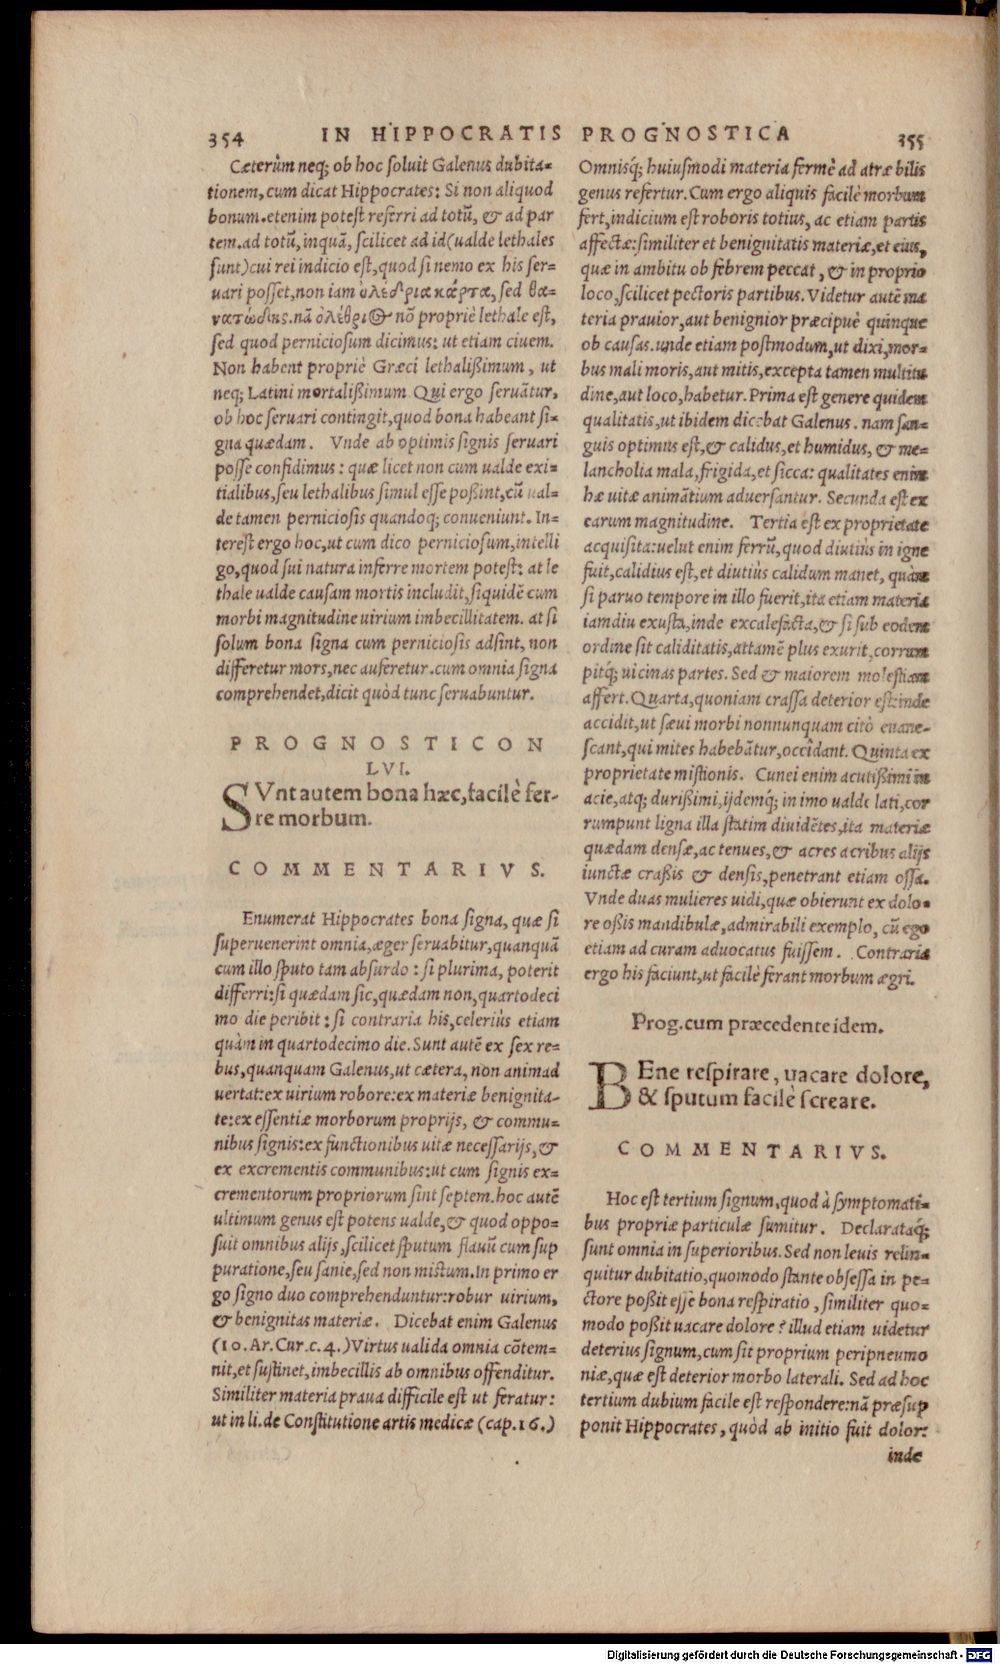 354 IN HIPPOCRATIS PROGNOSTICA 355
Cæterùm neq; ob hoc soluit Galenus dubita-
tionem, cum dicat Hippocrates: Si non aliquod
bonum. etenim potest referri ad totũ, & ad par
tem. ad totũ, inquã, scilicet ad id (ualde lethales
sunt) cui rei indicio est, quod si nemo ex his ser-
uari posset, non iam ὀλέθρια κάρτα, sed θα-
νατώδης. nã ὀλέθριος nõ propriè lethale est,
sed quod perniciosum dicimus: ut etiam ciuem.
Non habent propriè Græci lethalißimum, ut
neq; Latini mortalißimum. Qui ergo seruãtur,
ob hoc seruari contingit, quod bona habeant si-
gna quædam. Vnde ab optimis signis seruari
posse confidimus: quæ licet non cum ualde exi-
tialibus, seu lethalibus simul esse poßint, cũ ual-
de tamen perniciosis quandoq; conueniunt. In-
terest ergo hoc, ut cum dico perniciosum, intelli
go, quod sui natura inferre mortem potest: at le
thale ualde causam mortis includit, siquidẽ cum
morbi magnitudine uirium imbecillitatem. at si
solum bona signa cum perniciosis adsint, non
differetur mors, nec auferetur. cum omnia signa
comprehendet, dicit quòd tunc seruabuntur.
PROGNOSTICON
LVI.
SVnt autem bona hæc, facilè fer-
re morbum.
COMMENTARIVS.
Enumerat Hippocrates bona signa, quæ si
superuenerint omnia, æger seruabitur, quanquã
cum illo sputo tam absurdo: si plurima, poterit
differri: si quædam sic, quædam non, quartodeci
mo die peribit: si contraria his, celeriùs etiam
quàm in quartodecimo die. Sunt autẽ ex sex re-
bus, quanquam Galenus, ut cætera, non animad
uertat: ex uirium robore: ex materiæ benignita-
te: ex essentiæ morborum proprijs, & commu-
nibus signis: ex functionibus uitæ necessarijs, &
ex excrementis communibus: ut cum signis ex-
crementorum propriorum sint septem. hoc autẽ
ultimum genus est potens ualde, & quod oppo-
suit omnibus alijs, scilicet sputum flauũ cum sup
puratione, seu sanie, sed non mistum. In primo er
go signo duo comprehenduntur: robur uirium,
& benignitas materiæ. Dicebat enim Galenus
(10. Ar. Cur. c. 4.) Virtus ualida omnia cõtem-
nit, et sustinet, imbecillis ab omnibus offenditur.
Similiter materia praua difficile est ut feratur:
ut in li. de Constitutione artis medicæ (cap. 16.)
Omnisq́; huiusmodi materia fermè ad atræ bilis
genus refertur. Cum ergo aliquis facilè morbum
fert, indicium est roboris totius, ac etiam partis
affectæ: similiter et benignitatis materiæ, et eius,
quæ in ambitu ob febrem peccat, & in proprio
loco, scilicet pectoris partibus. Videtur autẽ ma
teria prauior, aut benignior præcipuè quinque
ob causas. unde etiam postmodum, ut dixi, mor-
bus mali moris, aut mitis, excepta tamen multitu
dine, aut loco, habetur. Prima est genere quidem
qualitatis, ut ibidem dicebat Galenus. nam san-
guis optimus est, & calidus, et humidus, & me-
lancholia mala, frigida, et sicca: qualitates enim
hæ uitæ animãtium aduersantur. Secunda est ex
earum magnitudine. Tertia est ex proprietate
acquisita: uelut enim ferrũ, quod diutiùs in igne
fuit, calidius est, et diutiùs calidum manet, quàm
si paruo tempore in illo fuerit, ita etiam materia
iamdiu exusta, inde excalefacta, & si sub eodem
ordine sit caliditatis, attamẽ plus exurit, corrum
pitq́; uicinas partes. Sed & maiorem molestiam
affert. Quarta, quoniam crassa deterior est: inde
accidit, ut sæui morbi nonnunquam citò euane-
scant, qui mites habebãtur, occîdant. Quinta ex
proprietate mistionis. Cunei enim acutißimi in
acie, atq; durißimi, ijdemq́; in imo ualde lati, cor
rumpunt ligna illa statim diuidẽtes, ita materiæ
quædam densæ, ac tenues, & acres acribus alijs
iunctæ craßis & densis, penetrant etiam ossa.
Vnde duas mulieres uidi, quæ obierunt ex dolo-
re oßis mandibulæ, admirabili exemplo, cũ ego
etiam ad curam aduocatus fuissem. Contraria
ergo his faciunt, ut facilè ferant morbum ægri.
Prog. cum præcedente idem.
BEne respirare, uacare dolore,
& sputum facilè screare.
COMMENTARIVS.
Hoc est tertium signum, quod à symptomati-
bus propriæ particulæ sumitur. Declarataq́;
sunt omnia in superioribus. Sed non leuis relin-
quitur dubitatio, quomodo stante obsessa in pe-
ctore poßit esse bona respiratio, similiter quo-
modo poßit uacare dolore? illud etiam uidetur
deterius signum, cum sit proprium peripneumo
niæ, quæ est deterior morbo laterali. Sed ad hoc
tertium dubium facile est respondere: nã præsup
ponit Hippocrates, quòd ab initio fuit dolor:
inde
Digitalisierung gefördert durch die Deutsche Forschungsgemeinschaft - DFG